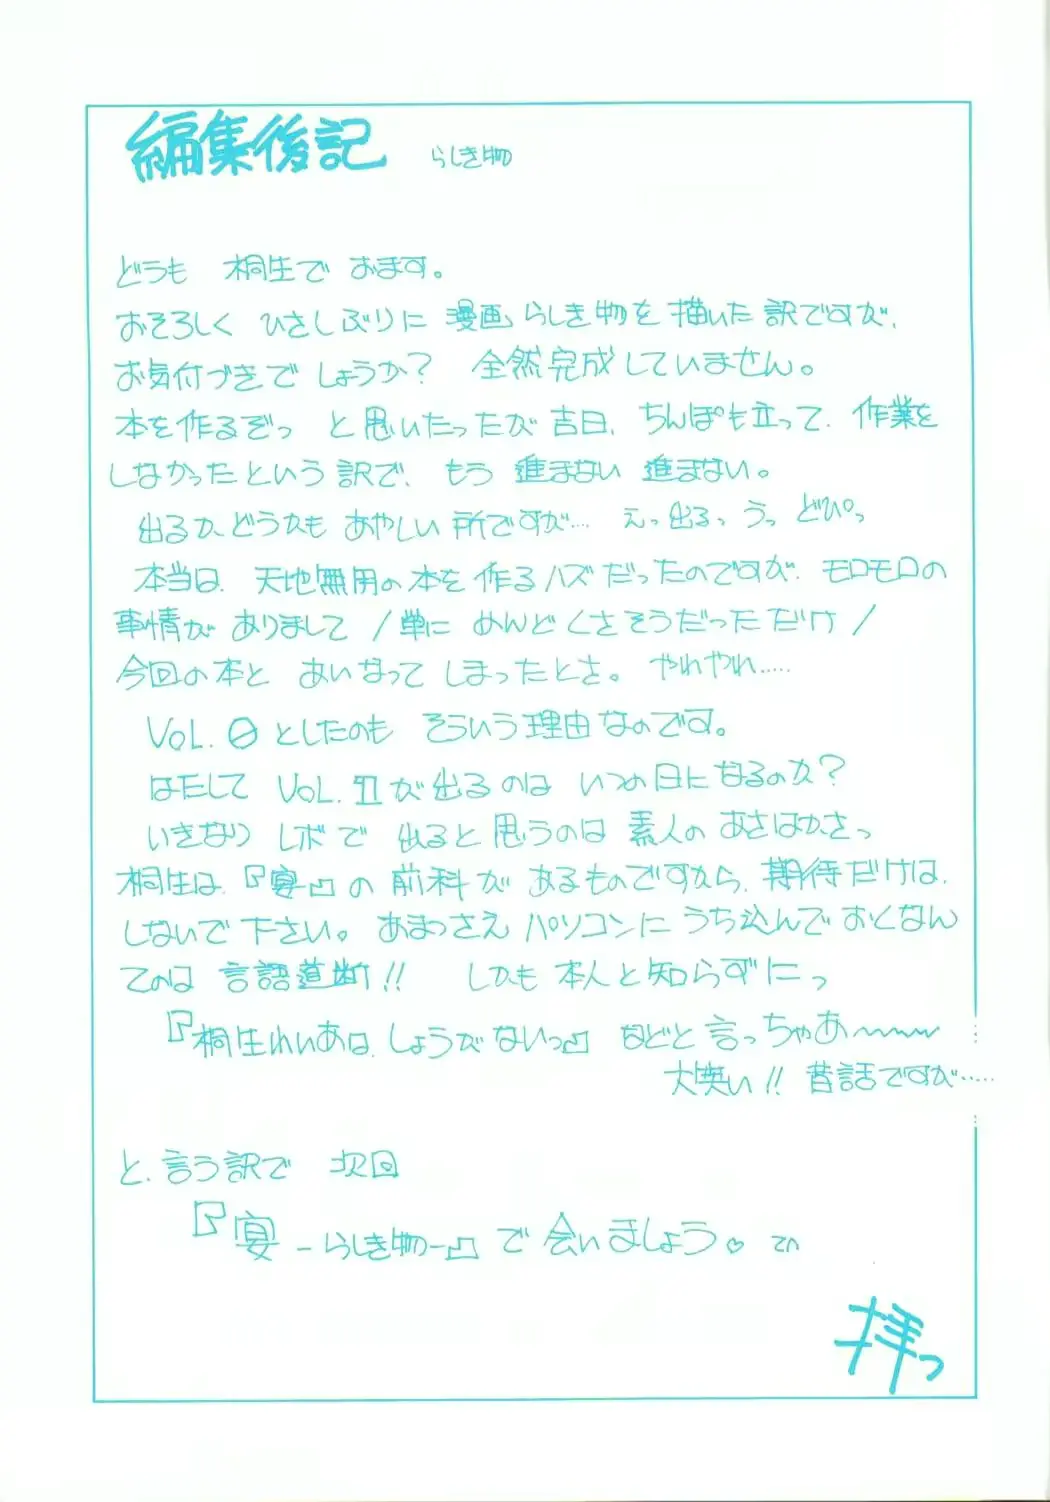 編集後記 らしき物
どうも 桐生で おます。
おそろしく ひさしぶりに 漫画らしき物を描いた訳ですが、
お気付づきで しょうか? 全然完成していません。
本を作るぞっ と思いたったが吉日、ちんぽも立って、作業を
しなかったという訳で、もう 進まない 進まない。
出るか、どうかも あやしい所ですが… えっ出るっ うっ どぴっ
本当は、天地無用の本を作るハズだったのですが、モロモロの
事情が ありまして /単に めんどくさそうだっただけ/
今回の本と あいなって しまったとさ。 やれやれ……
VOL.0としたのも そういう理由なのです。
はたして VOL.1が出るのは いつの日になるのか?
いきなり レボで 出ると思うのは 素人の あさはかさっ
桐生は、『宴』の 前科が あるものですから、期待だけは、
しないで下さい。あまっさえ パソコンにうち込んでおくなん
てのは 言語道断!! しかも本人と知らずにっ
『桐生れいあは、しょうがないっ』などと言っちゃあ〜〜〜
大笑い!! 昔話ですが……
と、言う訳で 次回
『宴-らしき物-』で 会いましょう。♡ てへ
拝っ